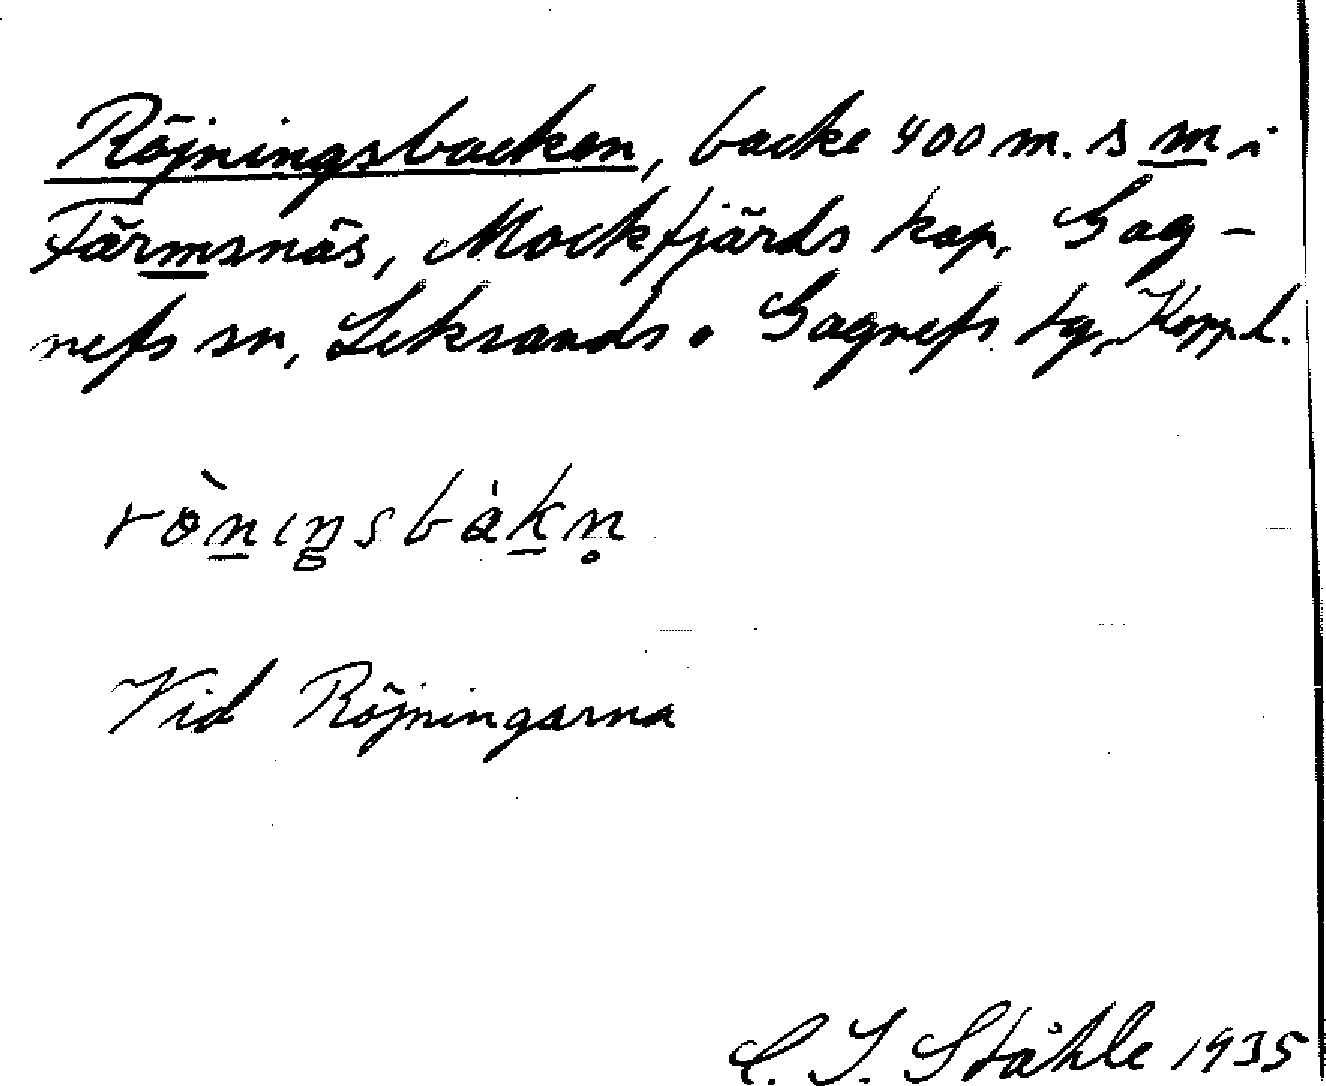 Röjningsbacken, backe 400 m. s m i
Färmsnäs, Mockfjärds kap, Gag-
nefs sn, Leksands o Gagnefs tg, Kopp.l.
rò̀n̲iŋsbàk̲n̥
Vid Röjningarna
C. I. Ståhle 1935